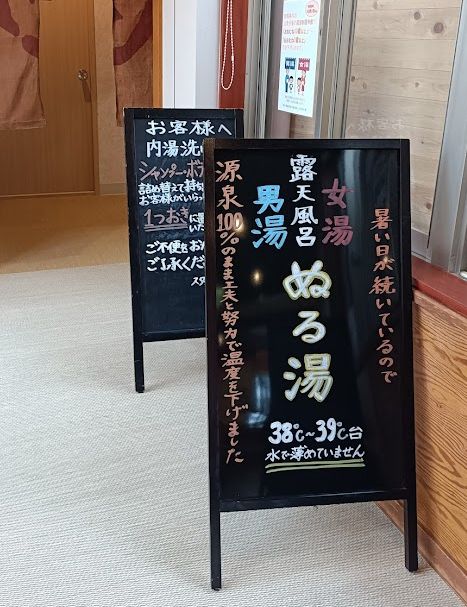 暑い日が続いているので
女湯
露天風呂
男湯
ぬる湯
38℃~39℃台
水で薄めていません
源泉100%のまま工夫と努力で温度を下げました
お客様へ
内湯洗い
シャンプー・ボデ
詰め替えて持ち
お客様がいらっ
1つおきに
いた
ご不便をおか
ご了承くだ
スタ